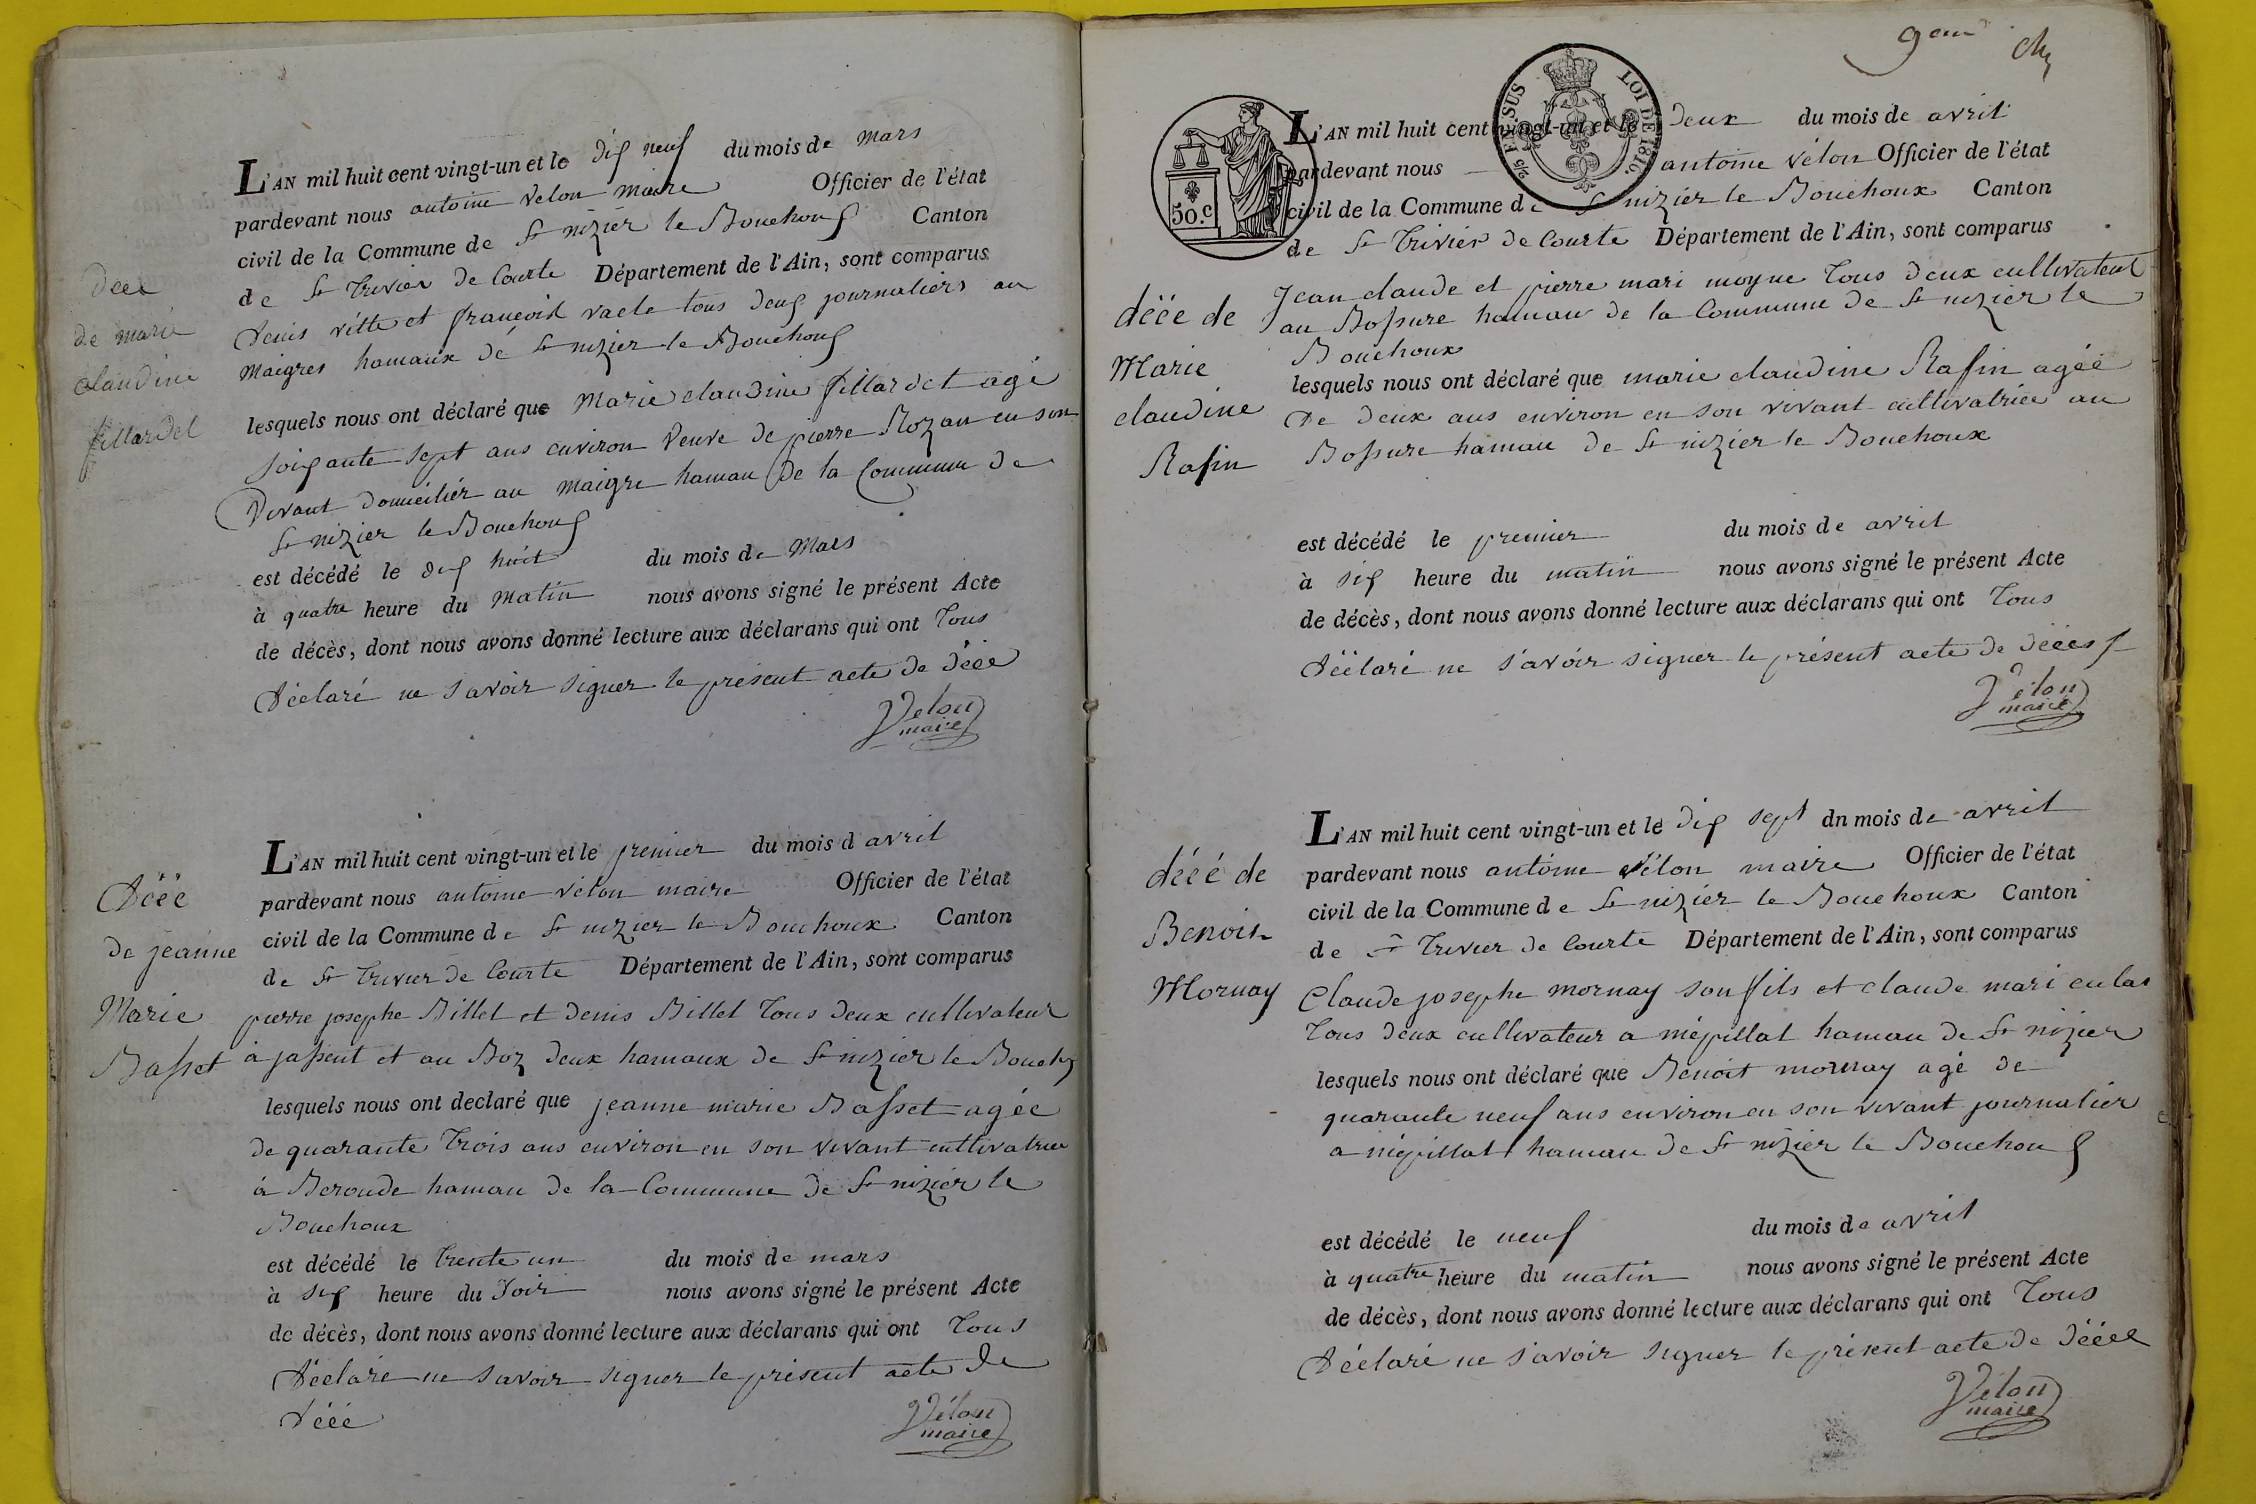 L'AN mil huit cent vingt-un et le dix neuf du mois de mars
pardevant nous antoine velon maire Officier de l'état
civil de la Commune de St nizier le Bouchoux Canton
de St Trivier de Courte Département de l'Ain, sont comparus
denis vitte et francois vacle tous deux journaliers au
maigres hamaux de St nizier le Bouchoux
lesquels nous ont déclaré que Marie claudine fillardet agé
soixante sept ans environ veuve de pierre Rozan en son
vivant domicilièr au maigre hamau de la Commune de
St nizier le Bouchoux
est décédé le dix huit du mois de Mars
à quatre heure du matin nous avons signé le présent Acte
de décès, dont nous avons donné lecture aux déclarans qui ont Tous
déclaré ne savoir signer le présent acte de décé
Velon
maire
décé
de marie
claudine
fillardet
L'AN mil huit cent vingt-un et le premier du mois d avril
pardevant nous antoine vélon maire Officier de l'état
civil de la Commune de St nizier le Bouchoux Canton
de St Trivier de Courte Département de l'Ain, sont comparus
pierre josephe Billet et denis Billet Tous deux cultivateur
à jassent et au Boz deux hamaux de St nizier le Bouchx
lesquels nous ont declaré que jeanne marie Basset agée
de quarante Trois ans environ en son vivant cultivatrice
à Beroude hamau de la Commune de St nizier le
Bouchoux
est décédé le Trente un du mois de mars
à six heure du Soir nous avons signé le présent Acte
de décès, dont nous avons donné lecture aux déclarans qui ont Tous
déclaré ne savoir signer le présent acte de
décé
Vélon
maire
décé
de jeanne
Marie
Basset
9eme
50.c
EN SUS
LOI DE 1816.
L'AN mil huit cent vingt-un et le deux du mois de avril
pardevant nous antoine vélon Officier de l'état
civil de la Commune de St nizier le Bouchoux Canton
de St Trivier de Courte Département de l'Ain, sont comparus
Jean claude et pierre mari moyne Tous deux cultivateur
au Bossure hamau de la Commune de St nizier le
Bouchoux
lesquels nous ont déclaré que marie claudine Rafin agée
de deux ans environ en son vivant cultivatrice au
Bossure hamau de St nizier le Bouchoux
est décédé le premier du mois de avril
à six heure du matin nous avons signé le présent Acte
de décès, dont nous avons donné lecture aux déclarans qui ont Tous
déclaré ne savoir signer le présent acte de décès
Vélon
maire
décé de
Marie
claudine
Rafin
L'AN mil huit cent vingt-un et le dix sept dn mois de avril
pardevant nous antoine vélon maire Officier de l'état
civil de la Commune de St nizier le Bouchoux Canton
de St Trivier de Courte Département de l'Ain, sont comparus
Claude josephe mornay son fils et claude mari culas
Tous deux cultivateur a mépillat hamau de St nizier
lesquels nous ont déclaré que Benoit mornay agé de
quarante neuf ans environ en son vivant journalièr
a mépillat hamau de St nizier le Bouchoux
est décédé le neuf du mois de avril
à quatre heure du matin nous avons signé le présent Acte
de décès, dont nous avons donné lecture aux déclarans qui ont Tous
déclaré ne savoir signer le présent acte de décé
Vélon
maire
décé de
Benoit
Mornay